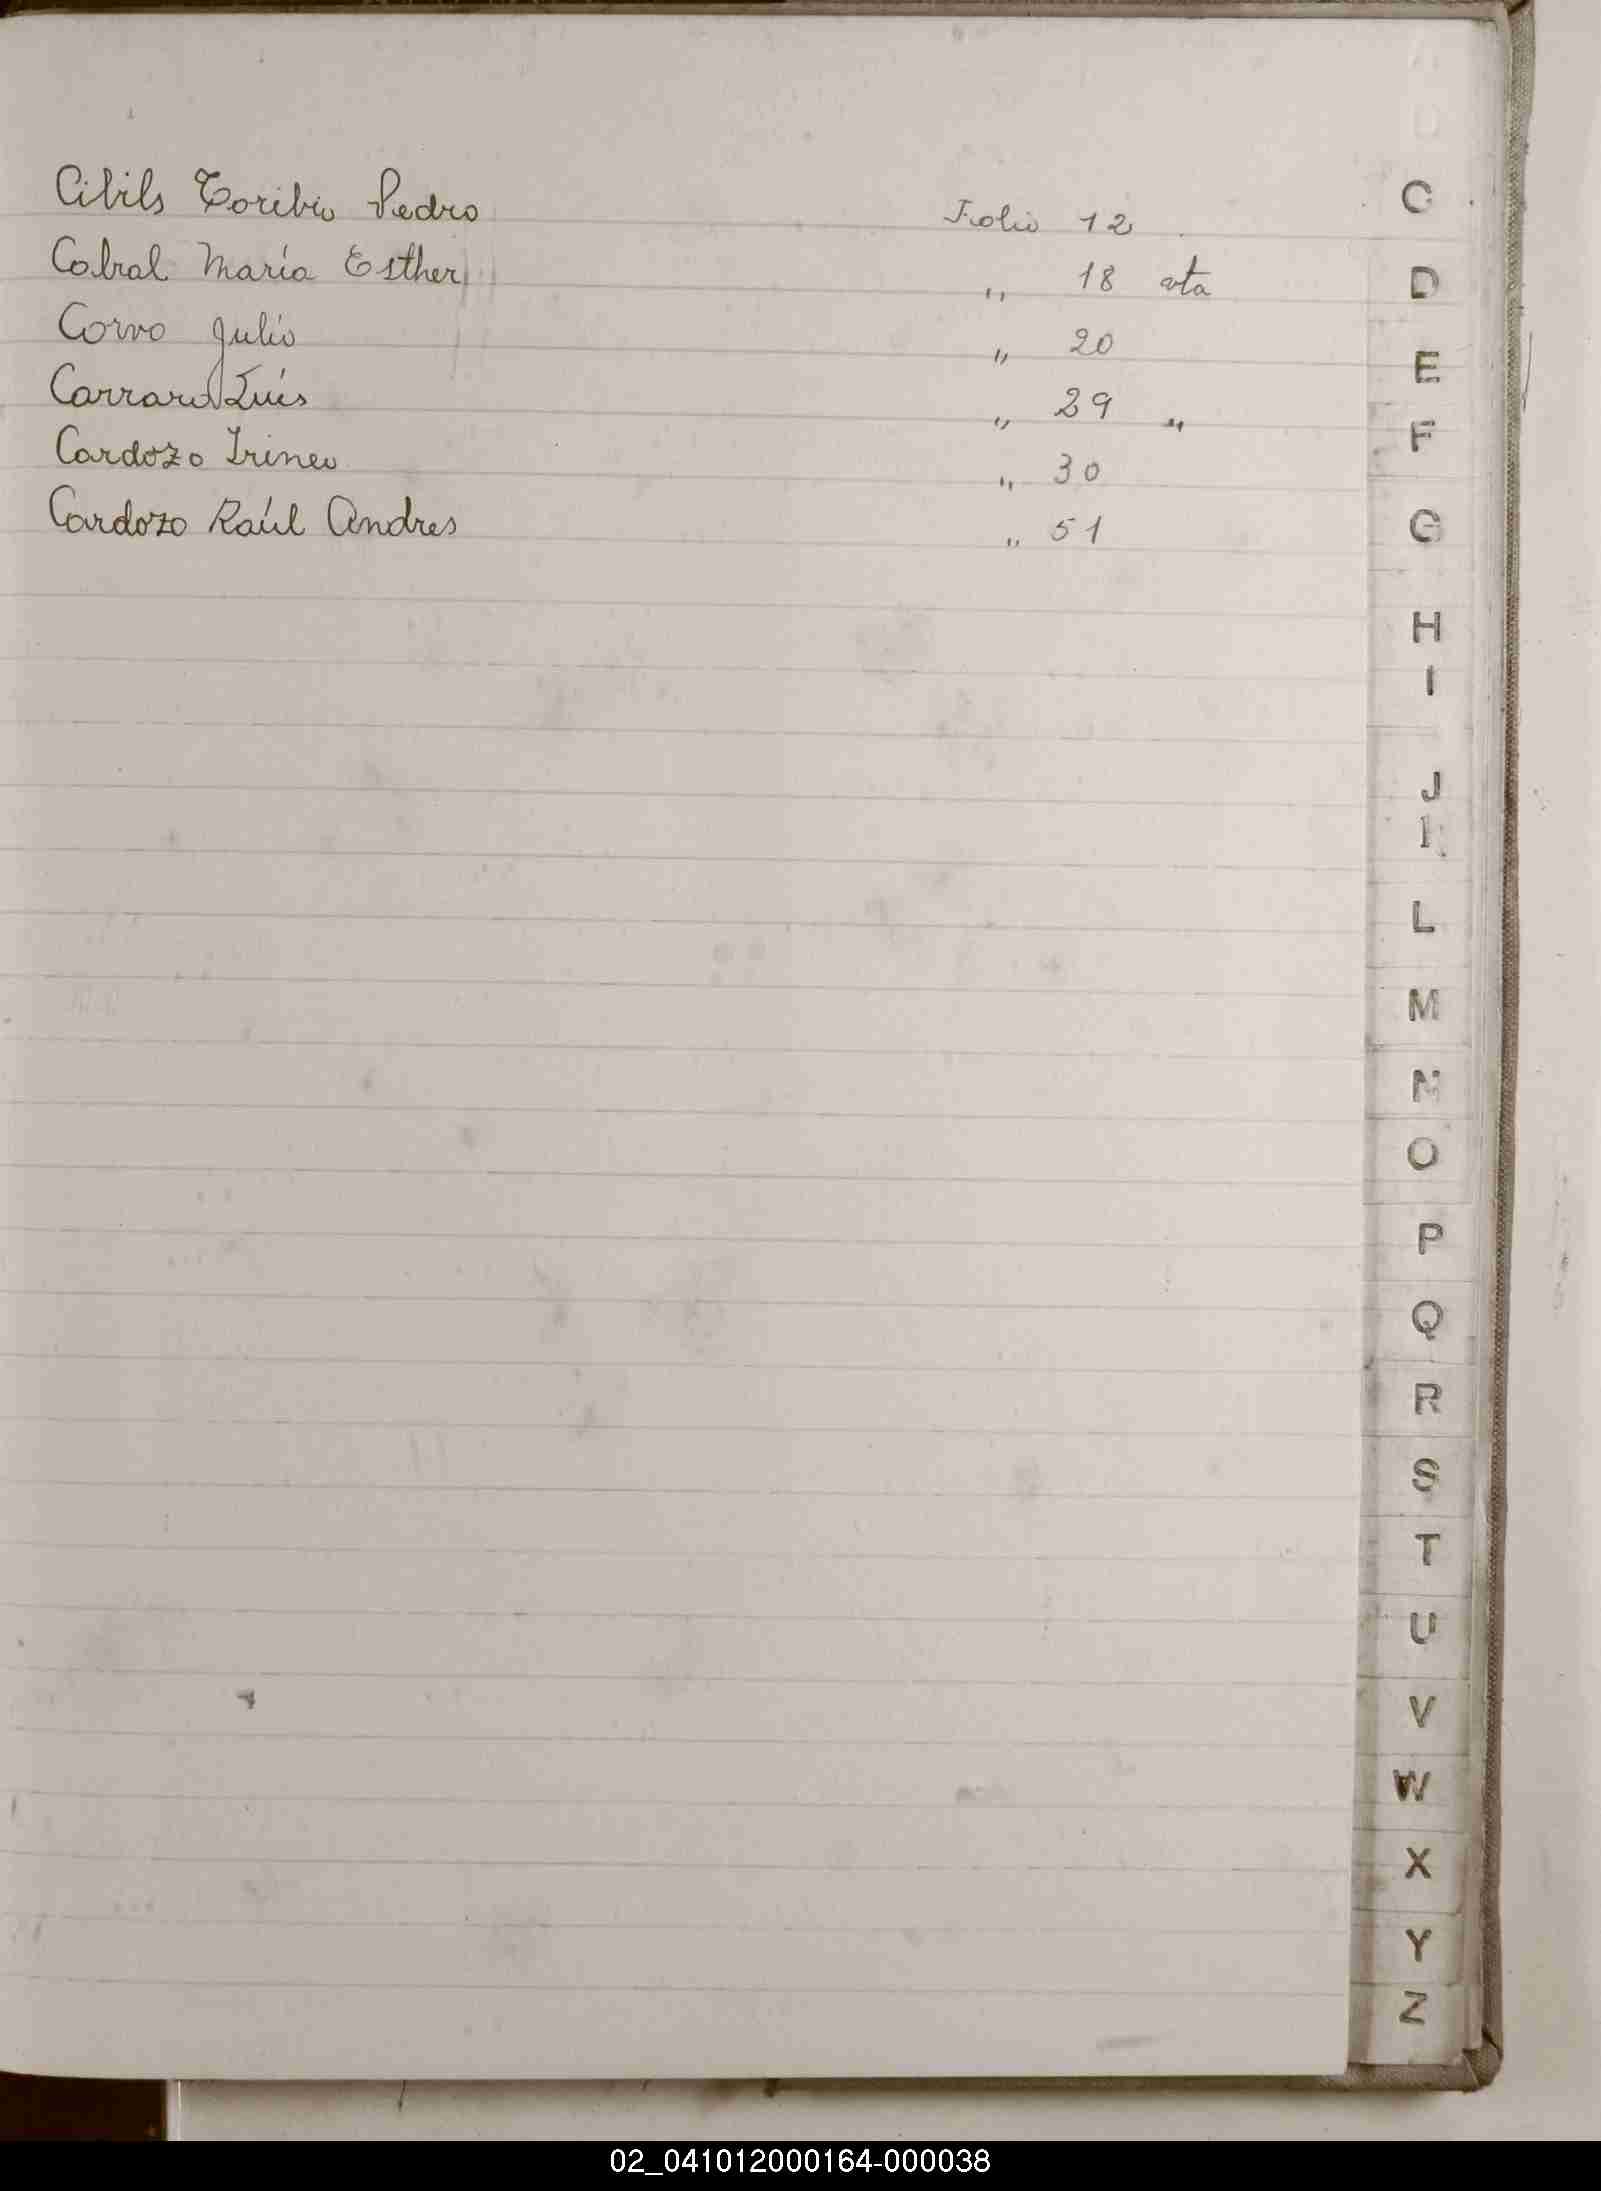 Cibils Toribio Pedro Folio 12
Cabral María Esther " 18 vta
Corvo Julio " 20
Carraro Luis " 29 "
Cardozo Irineo " 30
Cardozo Raúl Andres " 51
C
D
E
F
G
H
I
J
K
L
M
N
O
P
Q
R
S
T
U
V
W
X
Y
Z
02_041012000164-000038